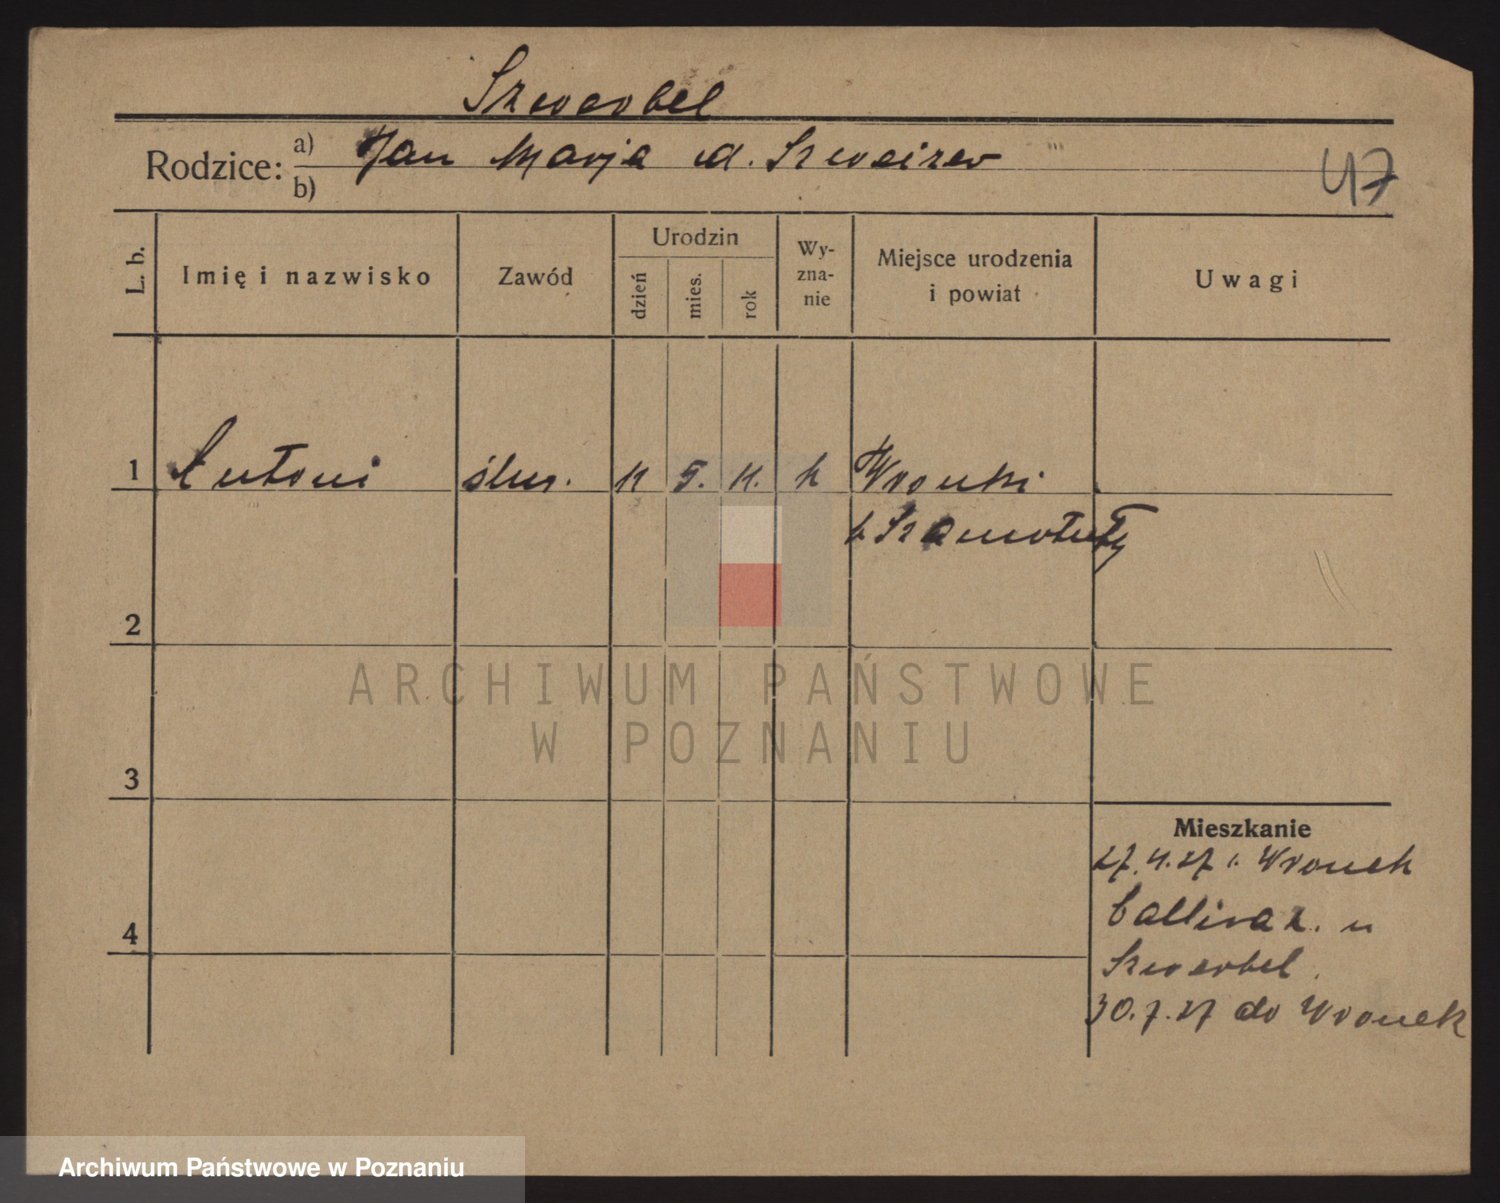 Szwerbel
Rodzice: a) Jan Marja d. Szweizer
b)
47
L. b.
Imię i nazwisko
Zawód
Urodzin
dzień
mies.
rok
Wy-
zna-
nie
Miejsce urodzenia
i powiat
Uwagi
1 Antoni ślus. 11 5. 11. k Wronki
p Szamotuły
2
3
4
Mieszkanie
27.4.27 z Wronek
u
Szwerbel.
30.7.27 do Wronek
ARCHIWUM PAŃSTWOWE
W POZNANIU
Archiwum Państwowe w Poznaniu